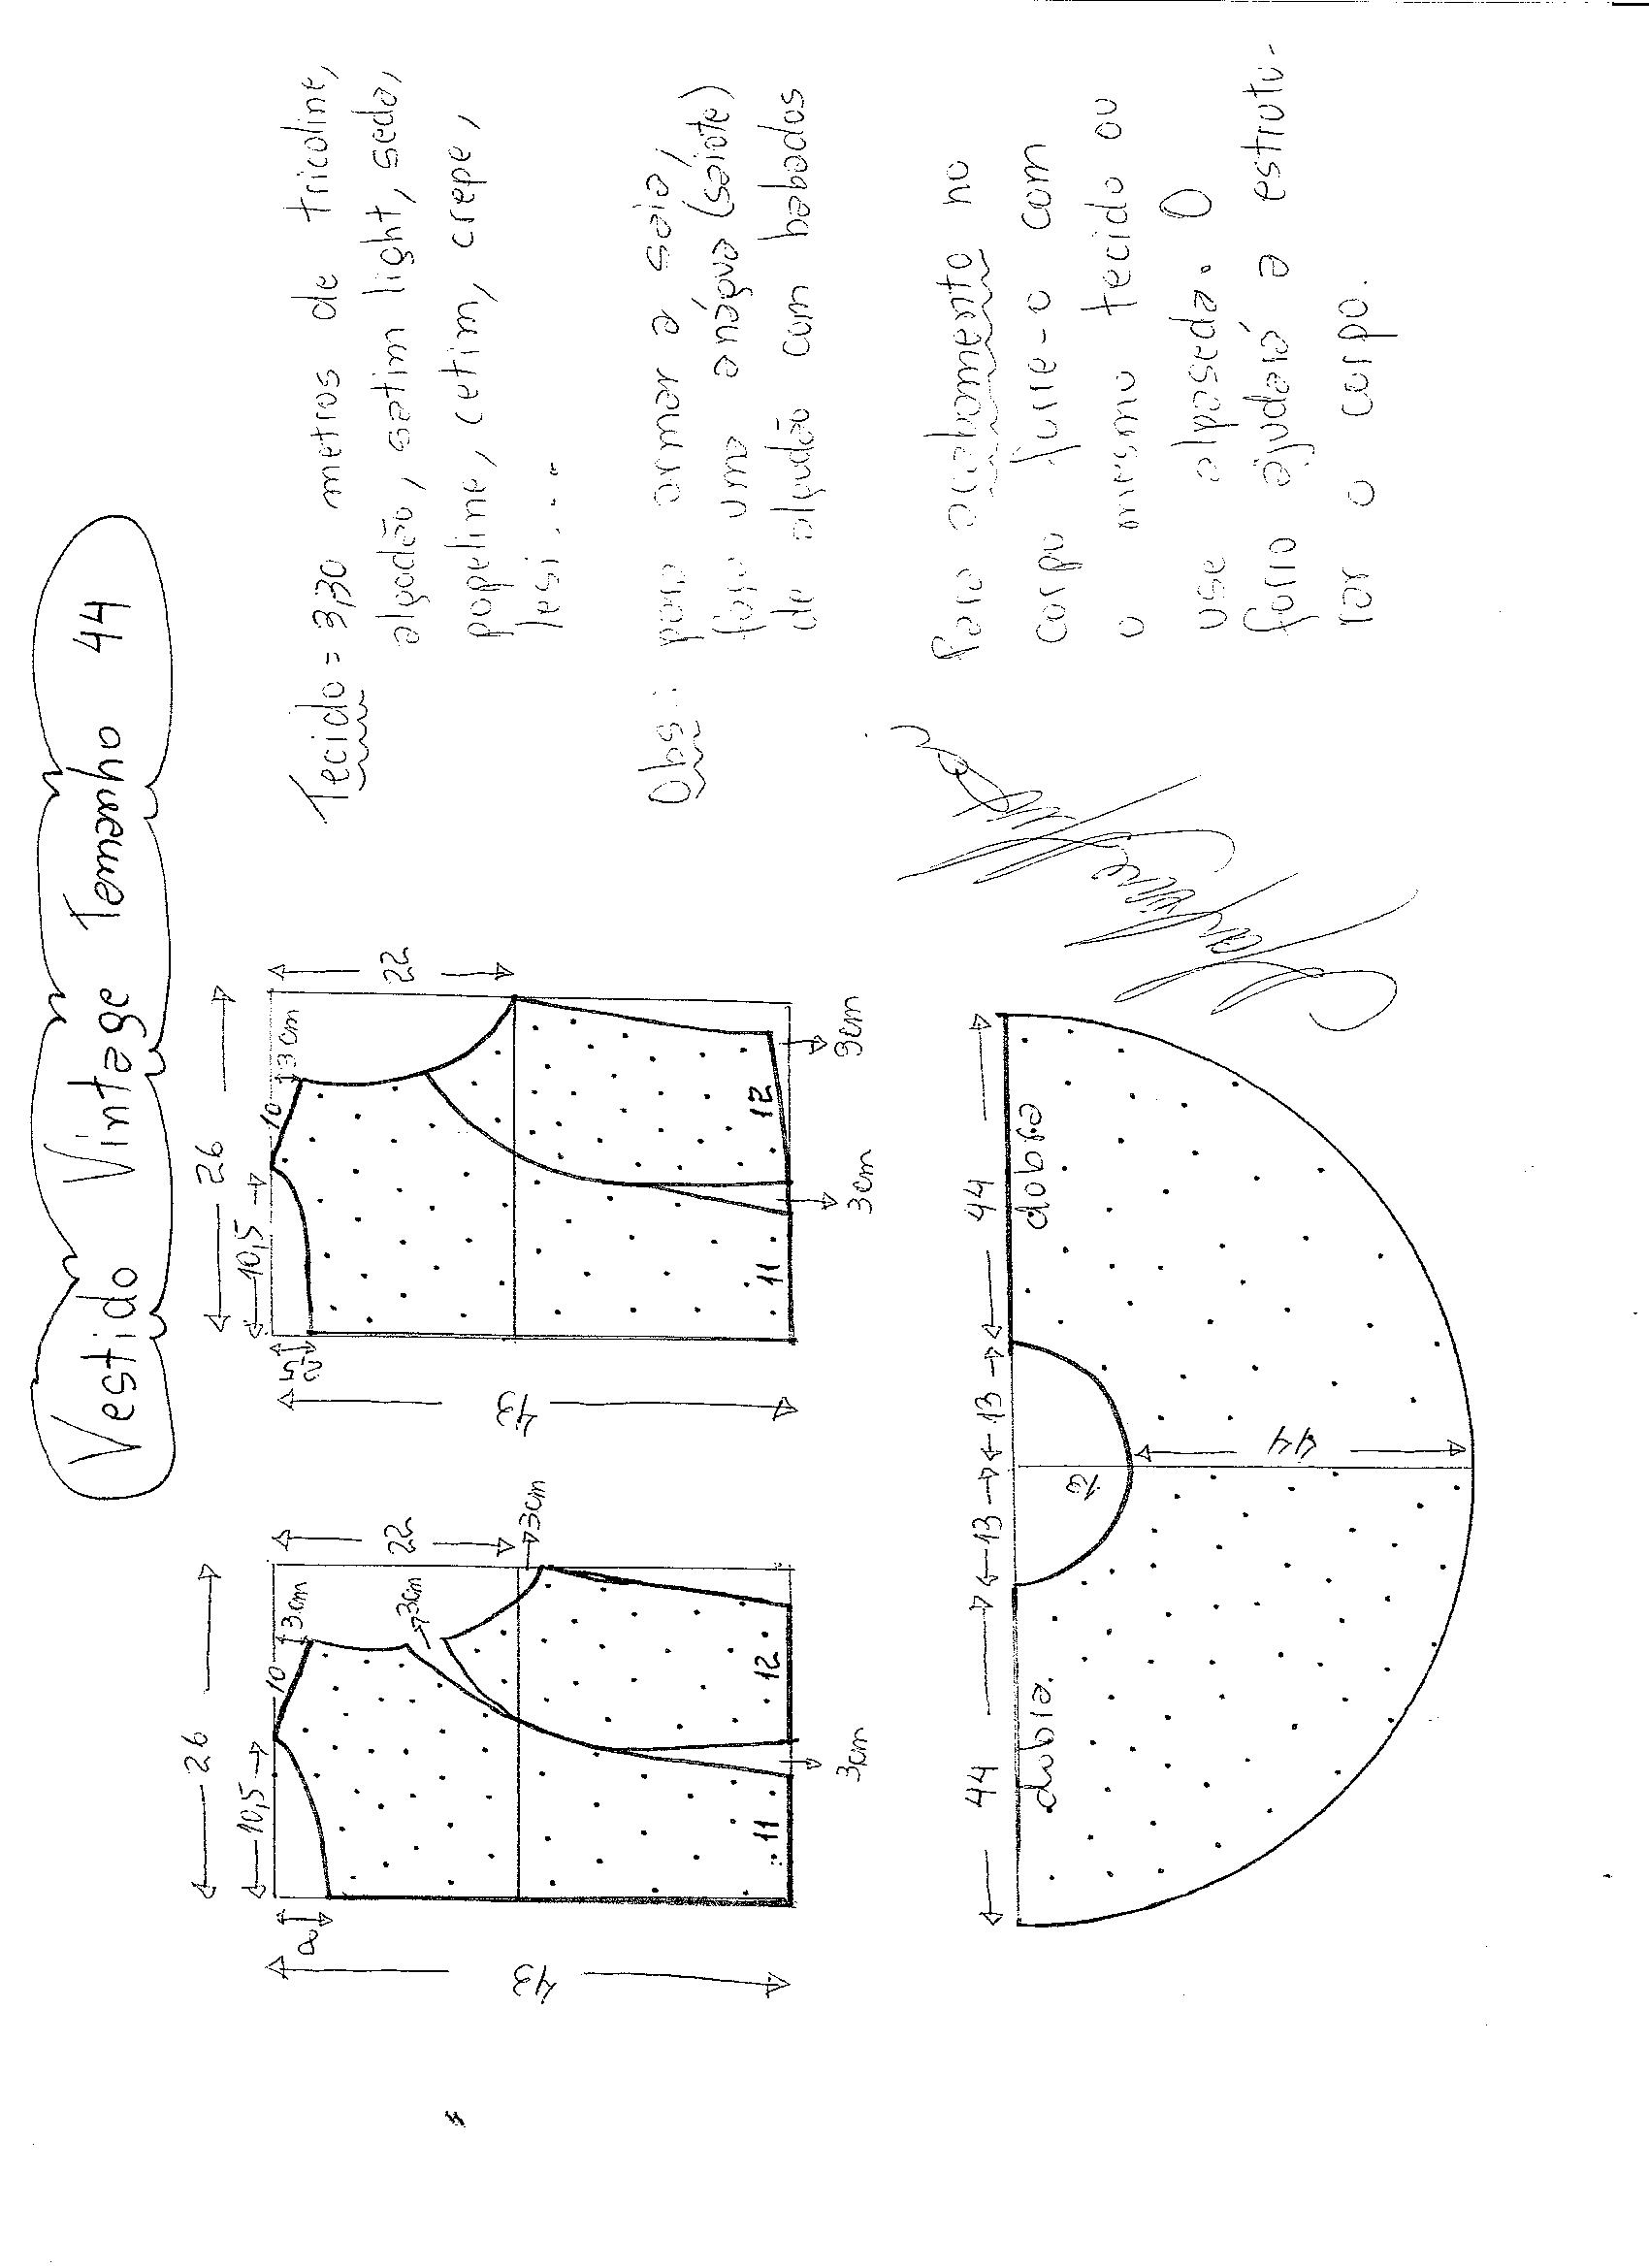 Vestido Vintage Tamanho 44
26
10,5
10
3cm
8
22
3cm
3cm
43
11
12
3cm
26
10,5
10
3cm
22
43
11
12
3cm
44
13
13
44
dobra
dobra
13
44
Tecido = 3,30 metros de tricoline,
algodão, satim light, seda,
popeline, cetim, crepe,
lesi...
Obs.: para armar a saia,
faça uma anágua (saiote)
de algodão com babados
Para acabamento no
corpo forre-o com
o mesmo tecido ou
use alpaseda. O
forro ajudará a estrutu-
rar o corpo.